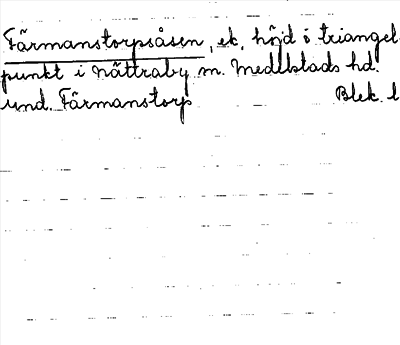 Färmanstorpsåsen, ek, höjd o triangel
punkt i Nättraby sn. Medelstads hd.
und. Färmanstorp Blek. l